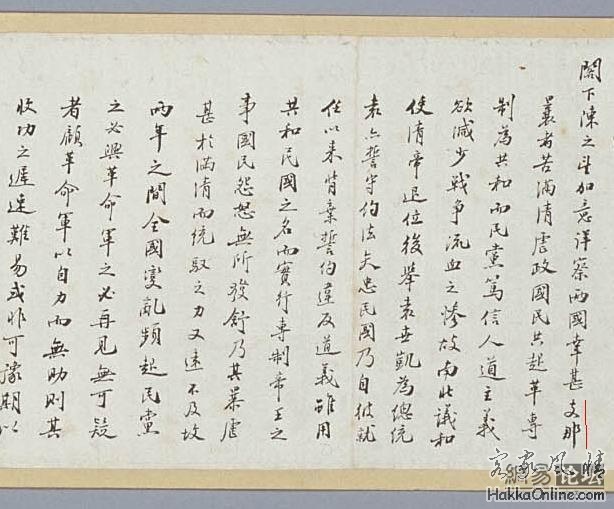 閣下陳之幸加意詳察兩國幸甚支那
曩者苦滿清虐政國民共起革專
制為共和而民黨篤信人道主義
欲減少戰爭流血之慘故南北議和
使清帝退位後舉袁世凱為總統
袁亦誓守約法矢忠民國乃自彼就
任以來背棄誓約違反道義雖用
共和民國之名而實行專制帝王之
事國民怨怒無所發舒乃其暴虐
甚於滿清而統馭之力又遠不及故
兩年之間全國變亂頻起民黨
之必興革命軍之必再見無可疑
者顧革命軍以自力而無助則其
收功之遲速難易或非可豫期以
客家风情
网易论坛
HakkaOnline.com